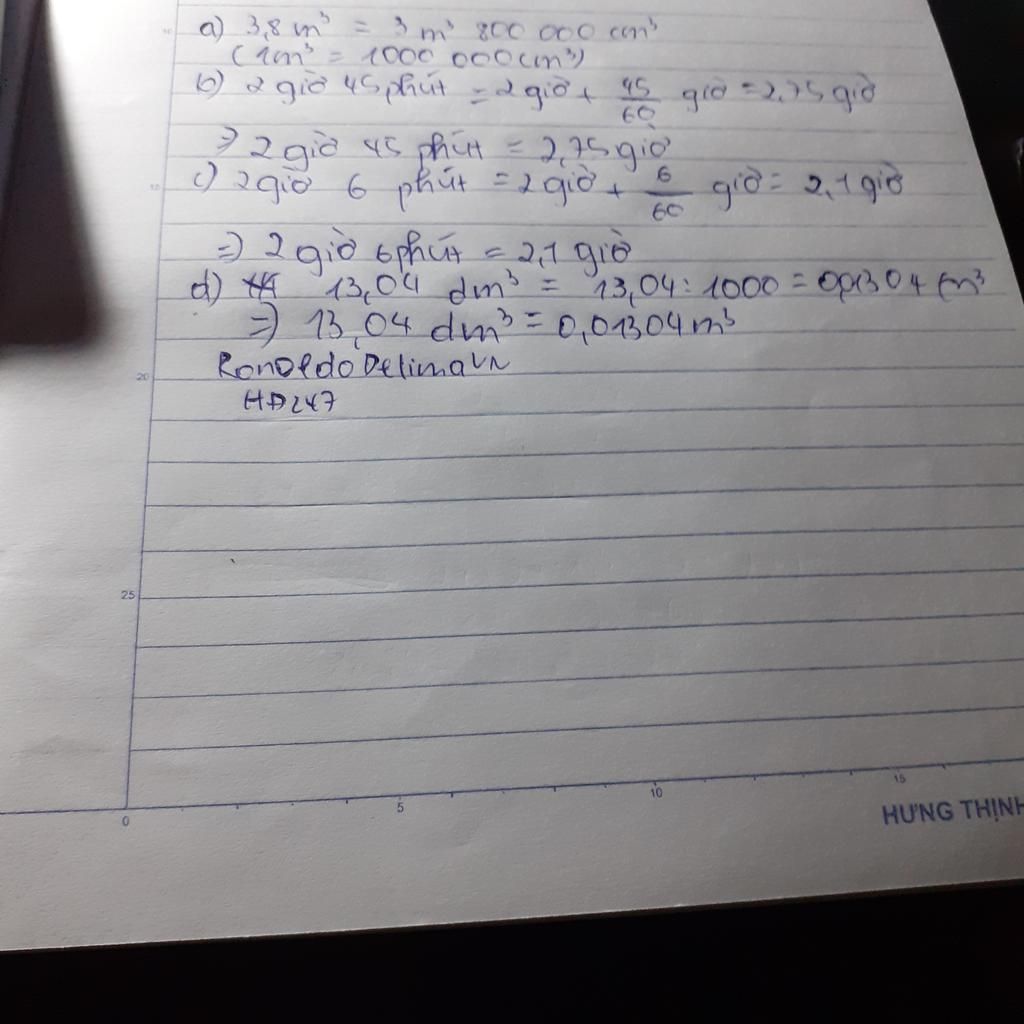 a) 3,8 m³ = 3 m³ 800 000 cm³
(1m³ = 1000 000cm³)
b) 2 giờ 45 phút = 2 giờ + 45/60 giờ = 2,75 giờ
=> 2 giờ 45 phút = 2,75 giờ
c) 2 giờ 6 phút = 2 giờ + 6/60 giờ = 2,1 giờ
=) 2 giờ 6 phút = 2,1 giờ
d) 13,04 dm³ = 13,04 : 1000 = 0,01304 m³
=) 13,04 dm³ = 0,01304 m³
RonaldoDelimaVN
HĐ247
20
25
0 5 10 15
HƯNG THỊNH